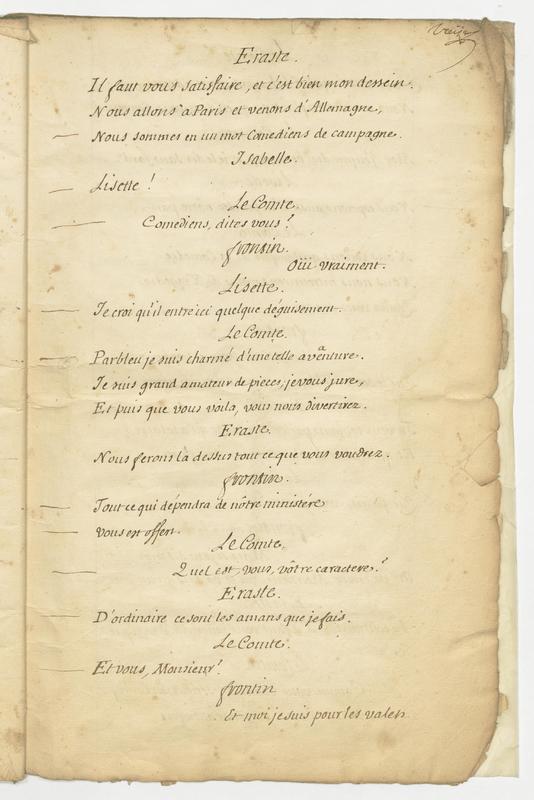 Eraste.
Il faut vous satisfaire, et c'est bien mon dessein.
Nous allons a Paris et venons d'Allemagne,
Nous sommes en un mot Comediens de campagne.
Isabelle.
Lisette !
Le Comte.
Comediens, dites vous ?
frontin.
Oüi vraiment.
Lisette.
Je croi qu'il entre ici quelque déguisement.
Le Comte.
Parbleu je suis charmé d'une telle avanture.
Je suis grand amateur de pieces, je vous jure,
Et puis que vous voila, vous nous divertirez.
Eraste.
Nous ferons la dessus tout ce que vous voudrez.
frontin.
Tout ce qui dépendra de nôtre ministére
vous est offert.
Le Comte.
Quel est, vous, vôtre caractere ?
Eraste.
D'ordinaire ce sont les amans que je fais.
Le Comte.
Et vous, Monsieur ?
frontin
Et moi je suis pour les valets